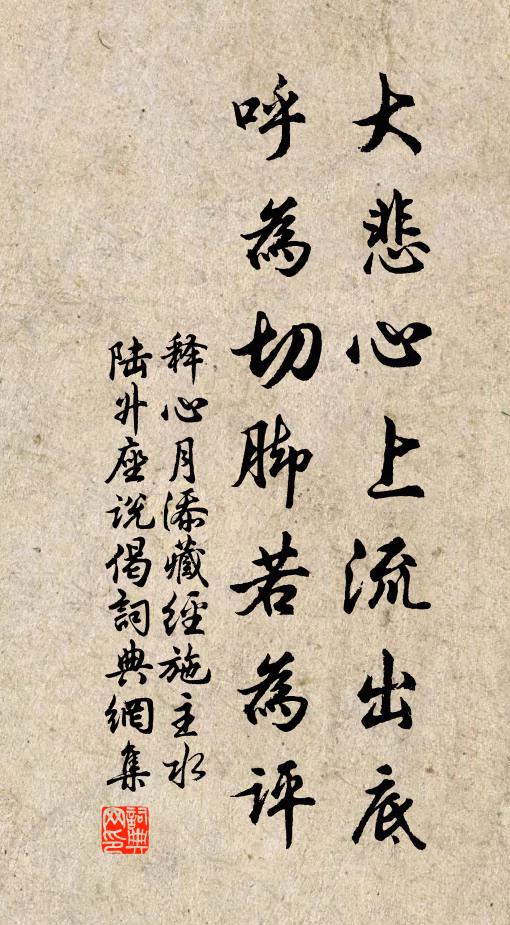 大悲心上流出底
呼為切脚若為评
释心月添藏經施主水
陆升座说偈詞典網集
詞典网印